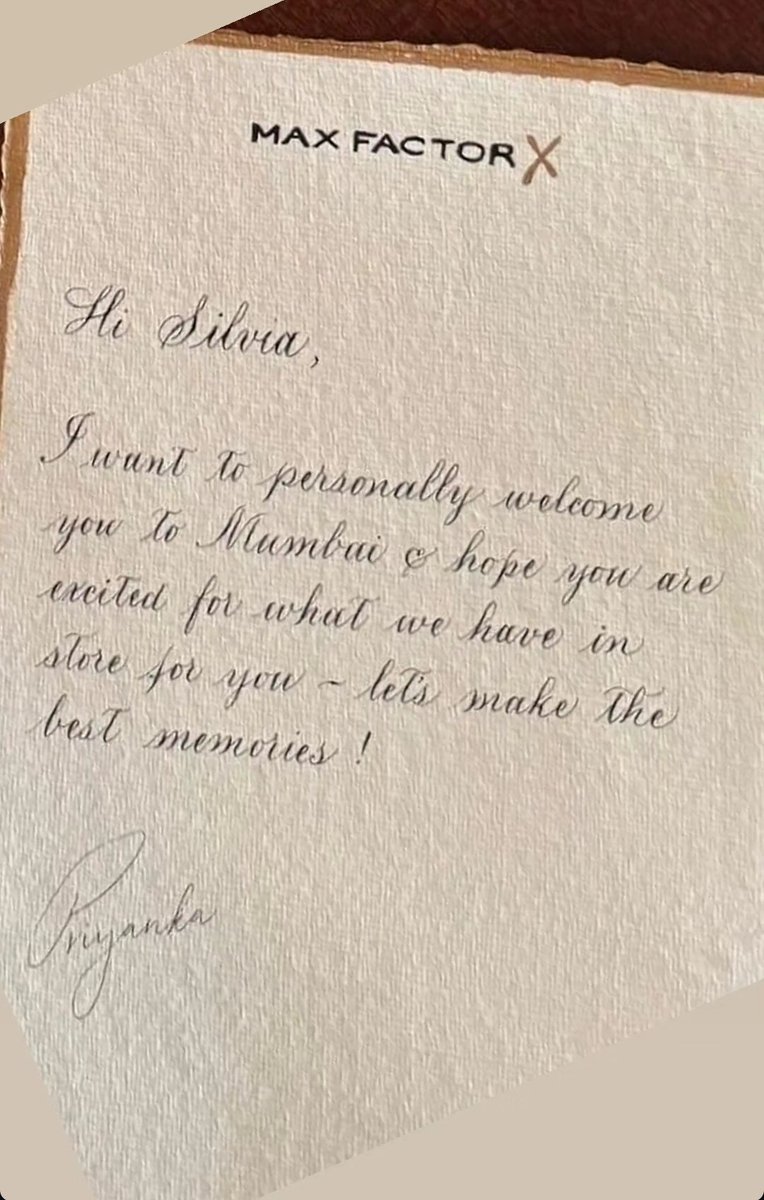 MAX FACTOR X
Hi Silvia,
I want to personally welcome
you to Mumbai & hope you are
excited for what we have in
store for you - let's make the
best memories!
Priyanka